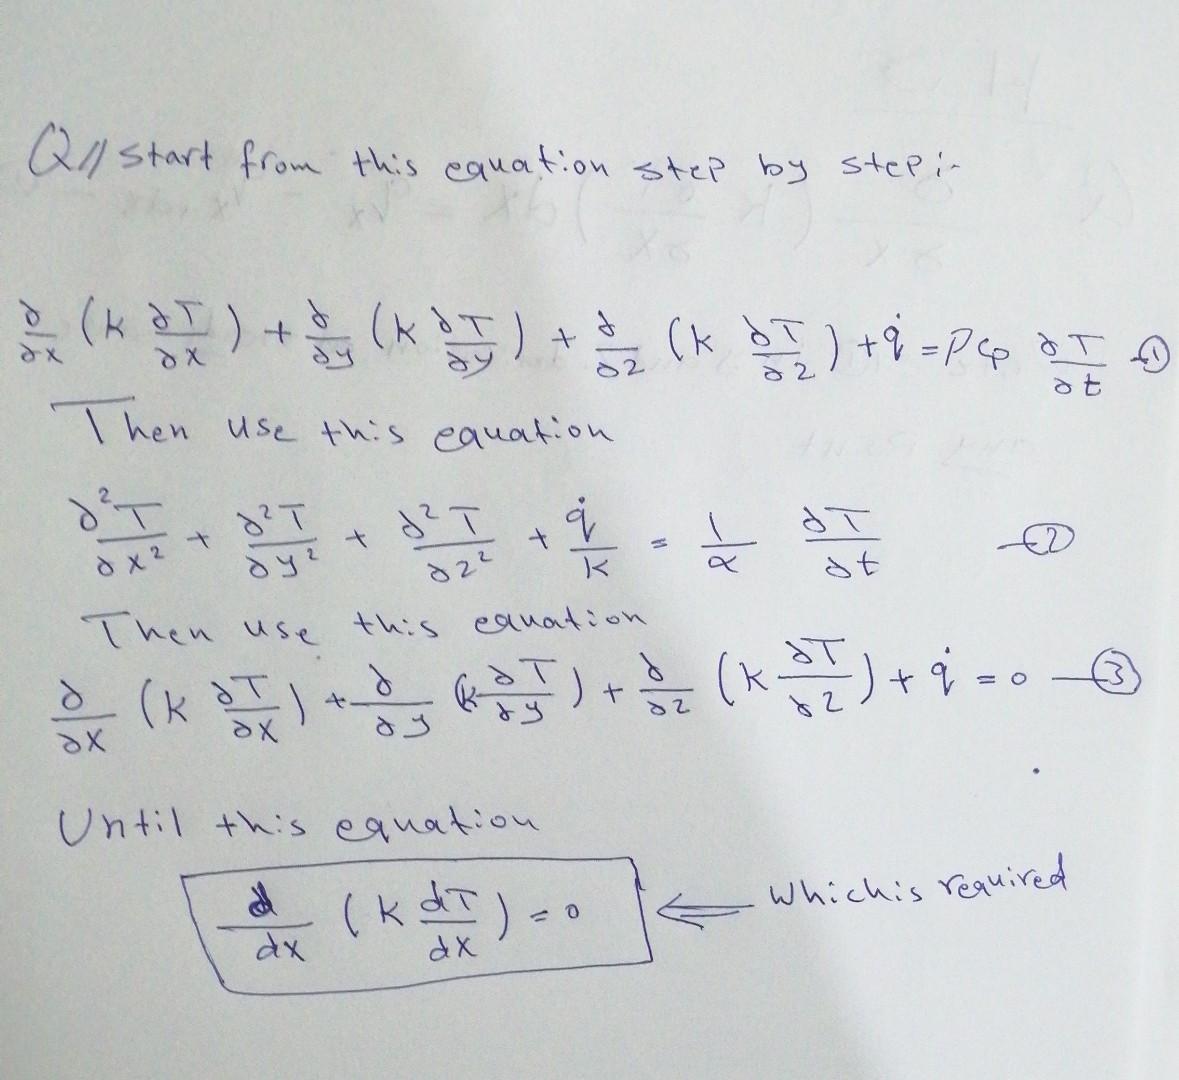 Q// start from this equation step by step:-
∂/∂x (k ∂T/∂x) + ∂/∂y (k ∂T/∂y) + ∂/∂z (k ∂T/∂z) + q̇ = ρcp ∂T/∂t —①
Then use this equation
∂²T/∂x² + ∂²T/∂y² + ∂²T/∂z² + q̇/k = 1/α ∂T/∂t —②
Then use this equation
∂/∂x (k ∂T/∂x) + ∂/∂y (k ∂T/∂y) + ∂/∂z (k ∂T/∂z) + q̇ = 0 —③
Until this equation
d/dx (k dT/dx) = 0 ⇐ which is required